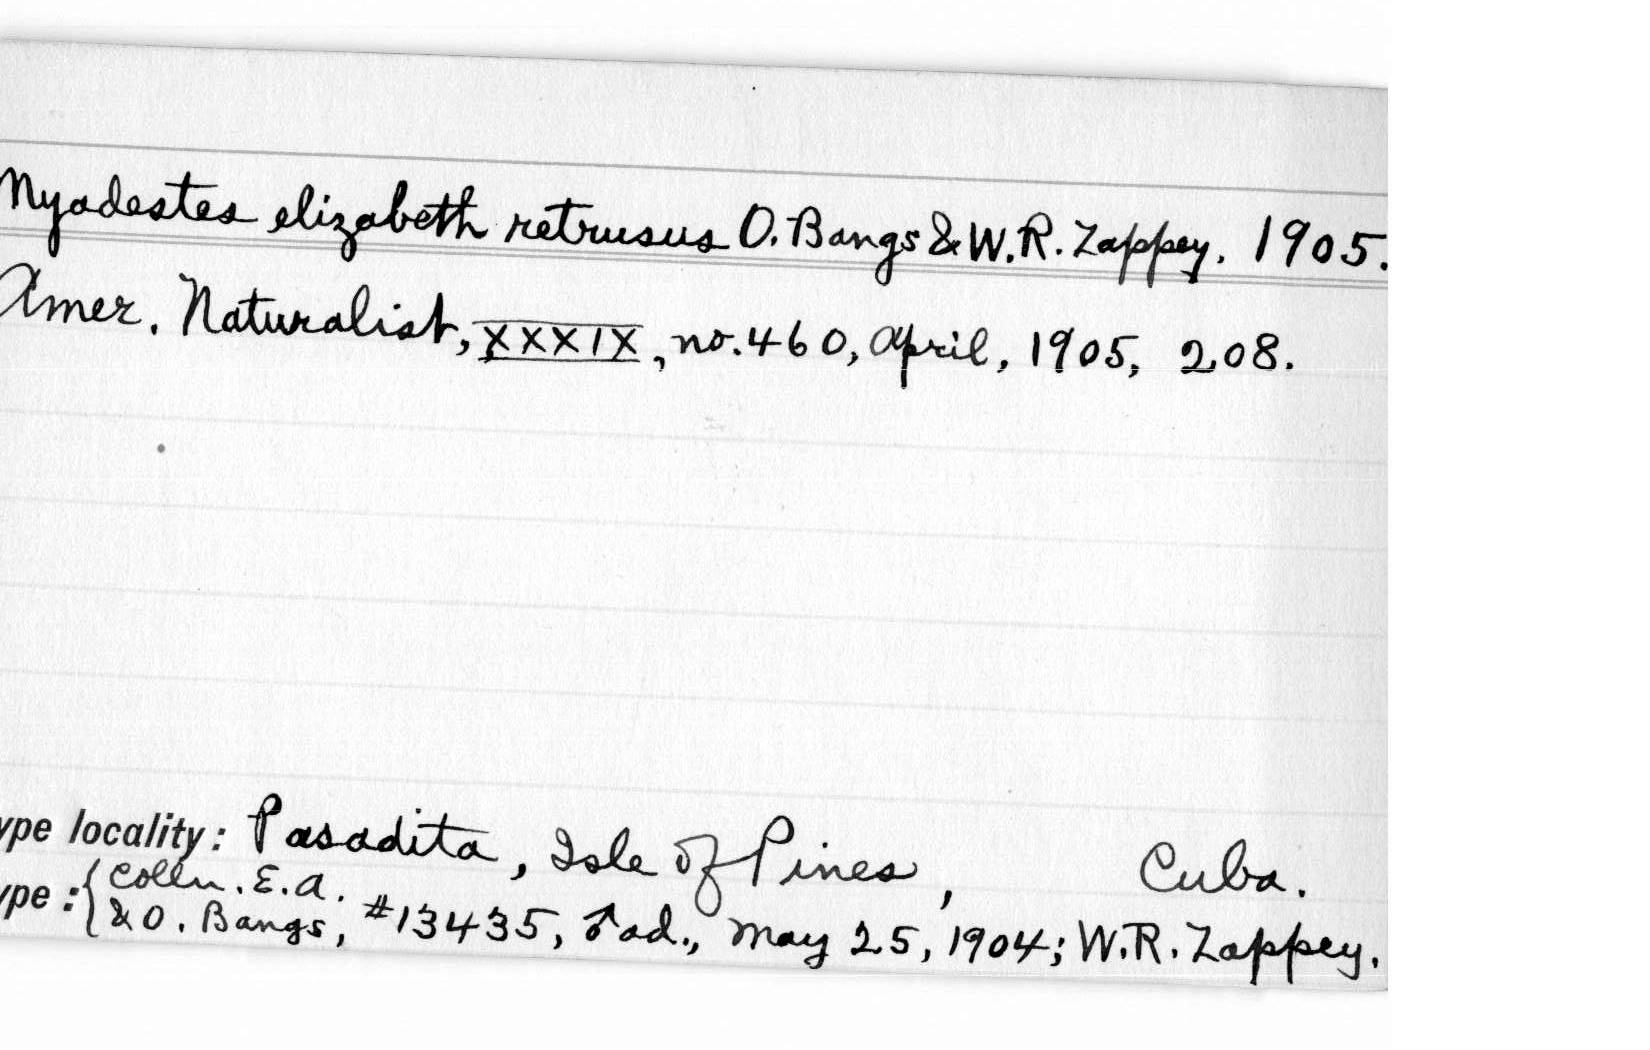 Myadestes elizabeth retrusus O. Bangs & W.R. Zappey. 1905.
Amer. Naturalist, XXXIX, no. 460, April, 1905, 208.
ype locality: Pasadita, Isle of Pines, Cuba.
ype: { Colln. E.A.
& O. Bangs, #13435, ♂ ad., May 25, 1904; W.R. Zappey.